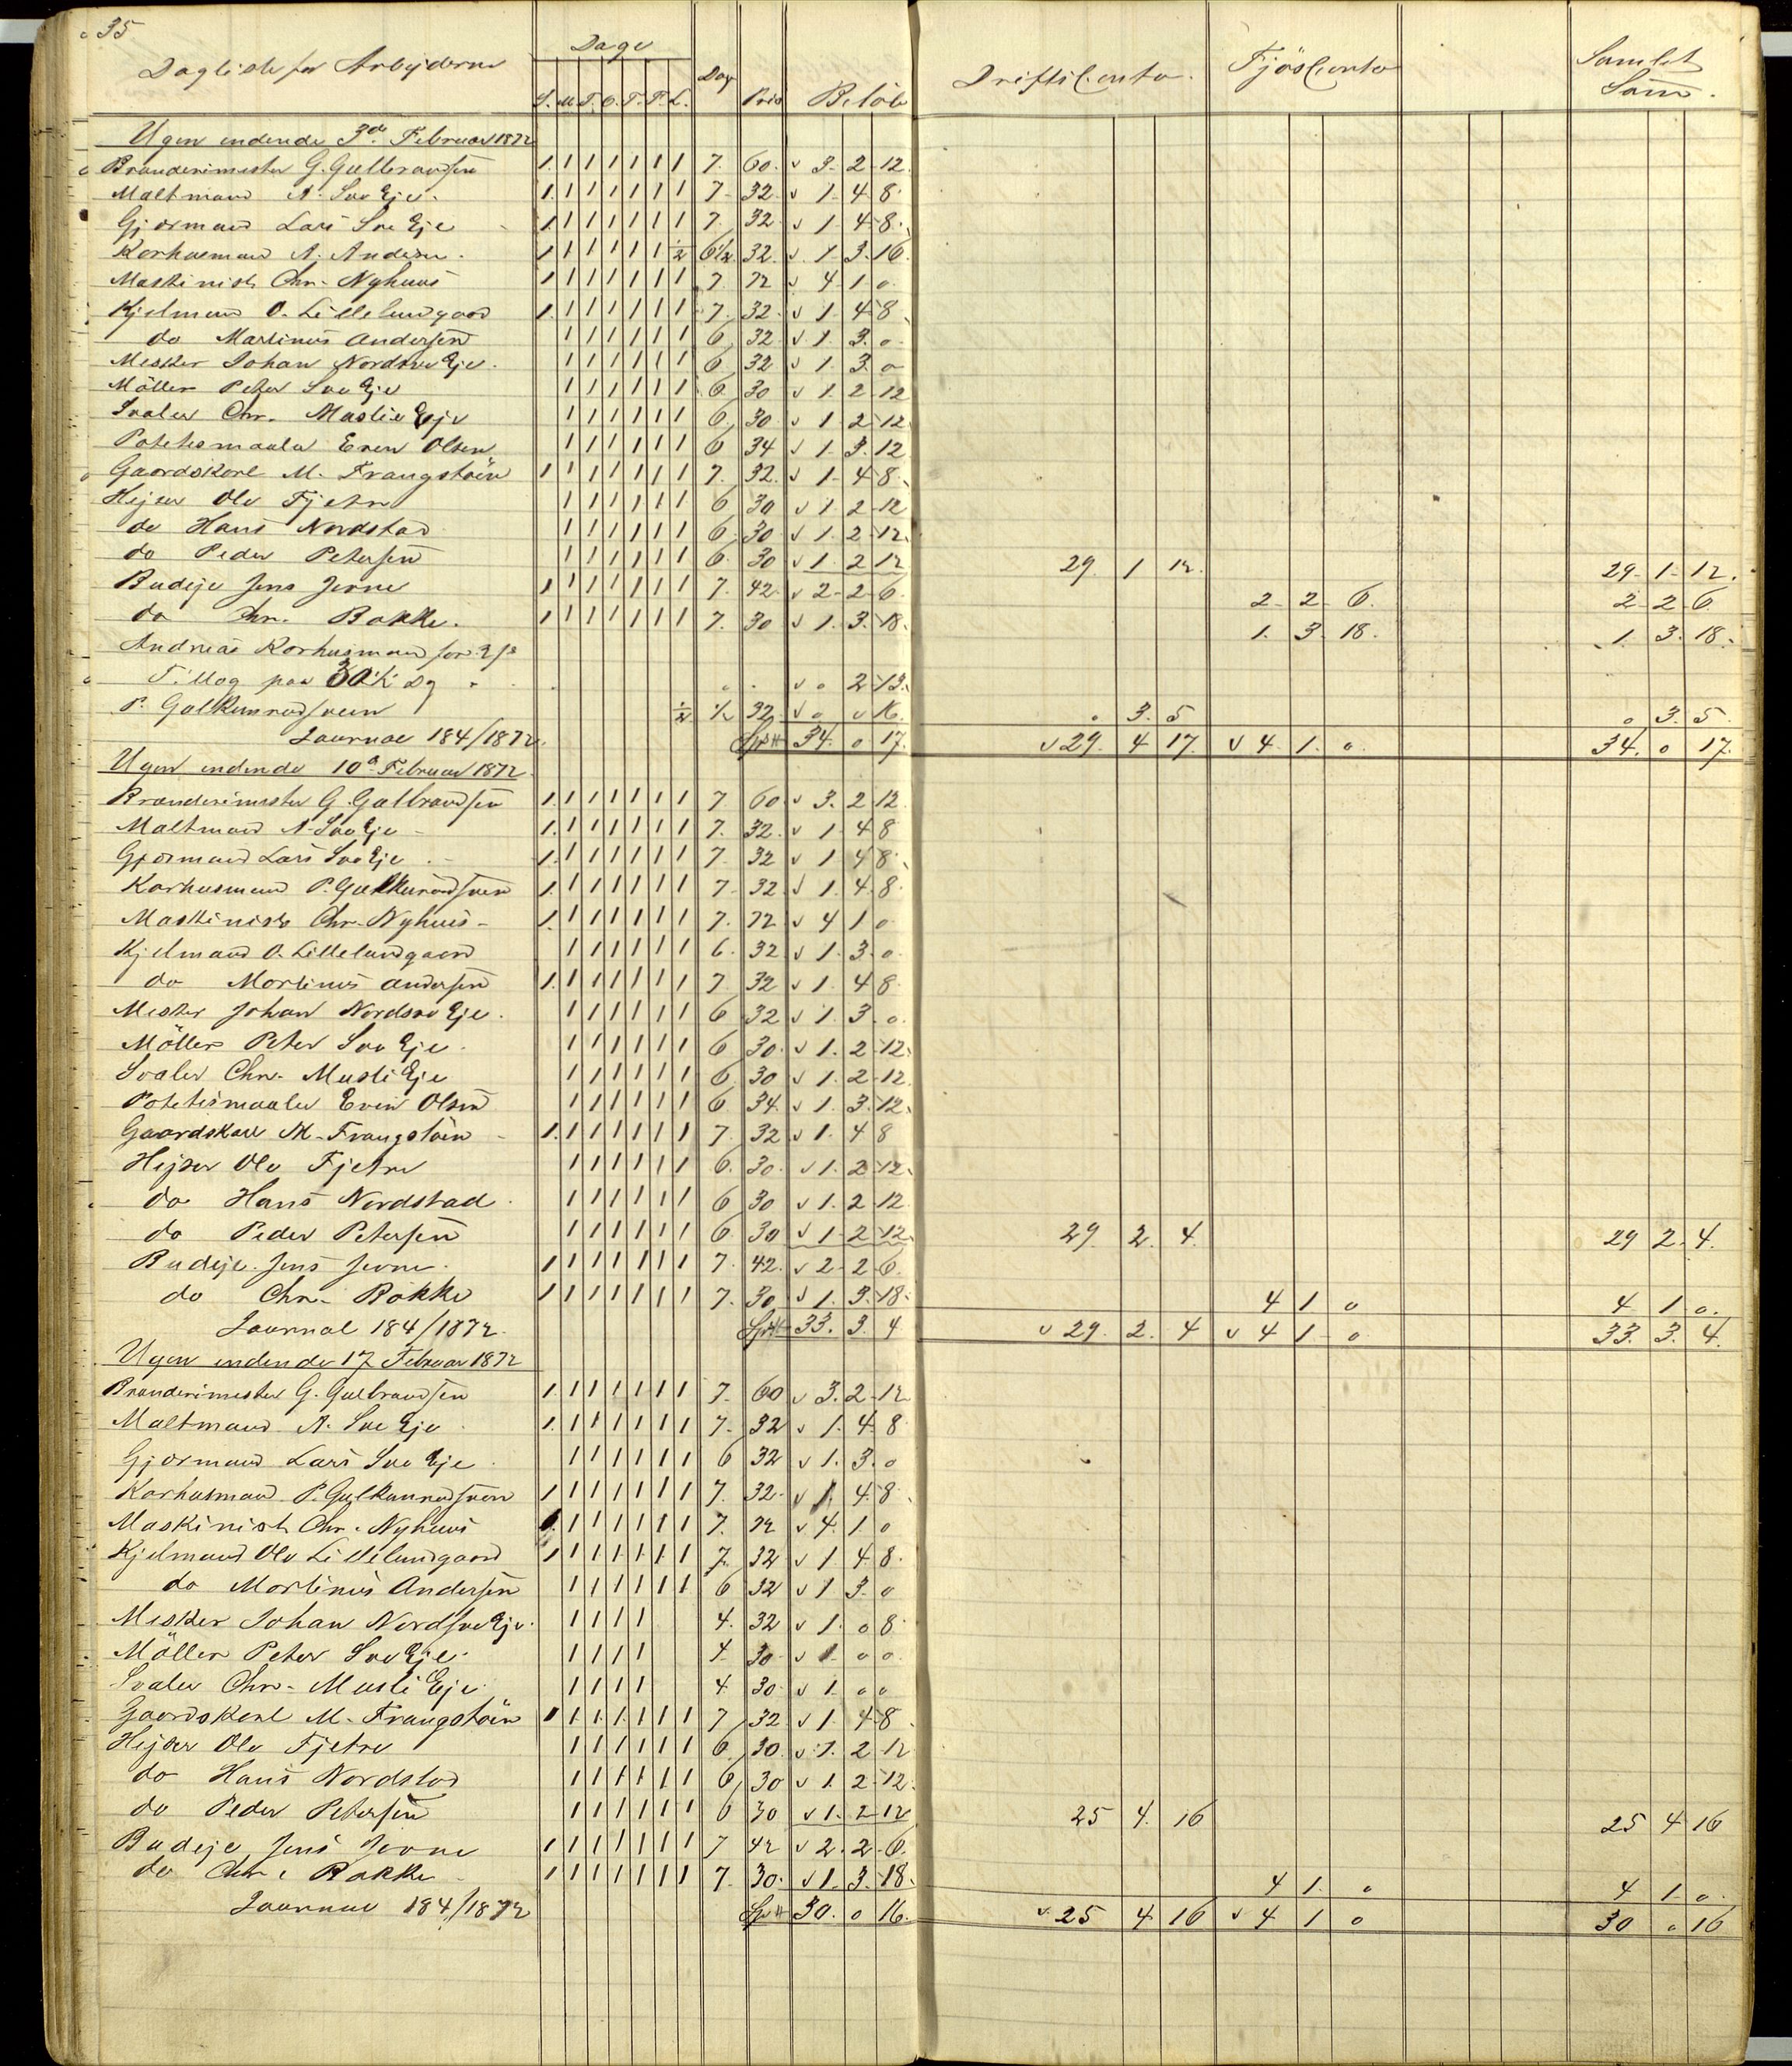 35
Dagliste for Arbejderne Dage Dag Pris Beløb Driftsconto. Fjösconto Samlet Sum.
S. M. T. O. T. F. L.
Ugen endende 3d. Februar 1872
Brænderimester G. Gulbrandsen 1. 1 1 1 1 1 1 7. 60. v 3. 2 12.
Maltmand A. Svee Eje. 1. 1 1 1 1 1 1 7. 32. v 1. 4 8.
Gjørmand Lars Svee Eje 1 1 1 1 1 1 1 7. 32 v 1. 4 8.
Karhusmand A. Anders. 1 1 1 1 1 1 1/2 6 1/2 32. v 1. 3. 16.
Maskinist Chr. Nyhuus 1 1 1 1 1 1 1 7. 72 v 4. 1 0
Kjelmand O. Lillelundgaard 1. 1 1 1 1 1 1 7. 32. v 1. 4 8
do Martinus Andersen 1 1 1 1 1 1 6 32 v 1. 3. 0
Mesker Johan Nordsve Eje. 1 1 1 1 1 1 6 32 v 1. 3. 0
Möller Peter Svee Eje 1 1 1 1 1 1 6. 30 v 1. 2 12
Svaler Chr. Muslie Eje 1 1 1 1 1 1 6 30 v 1 2 12
Potetesmaaler Even Olsen 1 1 1 1 1 1 6 34 v 1. 3. 12
Gaardskarl M. Frangstöen 1 1 1 1 1 1 1 7. 32. v 1. 4 8.
Hejser Ole Fjetre 1 1 1 1 1 1 6 30 v 1 2 12
do Hans Nordstad 1 1 1 1 1 1 6 30 v 1. 2 12.
do Peder Petersen 1 1 1 1 1 1 6. 30 v 1. 2 12 29. 1 12. 29. 1. 12.
Budeje Jens Jevne 1 1 1 1 1 1 1 7. 42. v 2. 2 6. 2. 2 6. 2. 2 6.
do Chr. Bakke. 1 1 1 1 1 1 1 7. 30 v 1. 3. 18. 1. 3 18. 1. 3. 18.
Andreas Karhusmand for
Tillæg paa v 0 2 13.
P. Gulkunradsveen 1/2 1/2 32. v 0 0 16. 0 3. 5 0 3. 5.
Journal 184/1872. Spd 34. 0 17. v 29. 4 17. v 4. 1. 0 34. 0 17.
Ugen endende 10d. Februar 1872.
Brænderimester G. Gulbrandsen 1. 1 1 1 1 1 1 7 60 v 3. 2 12
Maltmand A. Svee Eje 1. 1 1 1 1 1 1 7. 32. v 1. 4 8
Gjørmand Lars Svee Eje 1. 1 1 1 1 1 1 7. 32 v 1. 4 8.
Karhusmand P. Gulkunradsveen 1. 1 1 1 1 1 1 7 32 v 1. 4. 8.
Maskinist Chr. Nyhuus 1. 1 1 1 1 1 1 7. 72 v 4 1 0
Kjelmand O. Lillelundgaard 1 1 1 1 1 1 6. 32 v 1. 3. 0
do Martinus Andersen 1. 1 1 1 1 1 1 7 32 v 1. 4 8
Mesker Johan Nordsve Eje. 1 1 1 1 1 1 6 32 v 1. 3. 0.
Möller Peter Svee Eje. 1 1 1 1 1 1 6 30. v 1. 2 12.
Svaler Chr. Musli Eje 1 1 1 1 1 1 6. 30 v 1. 2. 12.
Potetesmaaler Even Olsen 1 1 1 1 1 1 6 34. v 1. 3. 12.
Gaardskarl M. Frangstöen 1. 1 1 1 1 1 1 7. 32 v 1. 4 8
Hejser Ole Fjetre 1 1 1 1 1 1 6. 30. v 1. 2 12.
do Hans Nordstad 1 1 1 1 1 1 6 30 v 1. 2 12
do Peder Petersen 1 1 1 1 1 1 6 30 v 1. 2 12 29. 2. 4. 29 2. 4.
Budeje Jens Jevne. 1 1 1 1 1 1 1 7. 42. v 2. 2 6.
do Chr. Bakke 1 1 1 1 1 1 1 7. 30 v 1. 3. 18. 4 1 0 4 1 0.
Journal 184/1872. Spd 33. 3. 4 v 29. 2. 4 v 4 1 0 33. 3. 4.
Ugen endende 17 Februar 1872
Brænderimester G. Gulbrandsen 1. 1 1 1 1 1 1 7. 60 v 3. 2 12
Maltmand A. Svee Eje 1. 1 1 1 1 1 1 7. 32 v 1. 4. 8
Gjørmand Lars Svee Eje 1 1 1 1 1 1 6 32 v 1. 3. 0
Karhusmand P. Gulkunradsveen 1 1 1 1 1 1 1 7. 32. v 1. 4. 8
Maskinist Chr. Nyhuus 1. 1 1 1 1 1 1 7. 72 v 4. 1. 0
Kjelmand Ole Lillelundgaard 1 1 1 1 1 1 1 7. 32 v 1 4. 8.
do Martinus Andersen 1 1 1 1 1 1 6 32 v 1 3. 0
Mesker Johan Nordsve Eje. 1 1 1 1 4. 32 v 1. 0 8
Möller Peter Svee Eje. 1 1 1 1 4 30 v 1 0 0
Svaler Chr. Musli Eje 1 1 1 1 4 30 v 1. 0 0
Gaardskarl M. Frangstöen 1 1 1 1 1 1 1 7 32 v 1. 4 8
Hejser Ole Fjetre 1 1 1 1 1 1 6. 30. v 1. 2 12
do Hans Nordstad 1 1 1 1 1 1 6 30 v 1. 2 12.
do Peder Petersen 1 1 1 1 1 1 6 30 v 1. 2 12 25 4. 16 25 4 16
Budeje Jens Jevne 1 1 1 1 1 1 1 7 42 v 2. 2. 6.
do Chr. Bakke 1 1 1 1 1 1 1 7. 30. v 1. 3. 18. 4 1. 0 4 1 0.
Journal 184/1872 Spd 30. 0 16. v 25 4 16 v 4 1 0 30 0 16